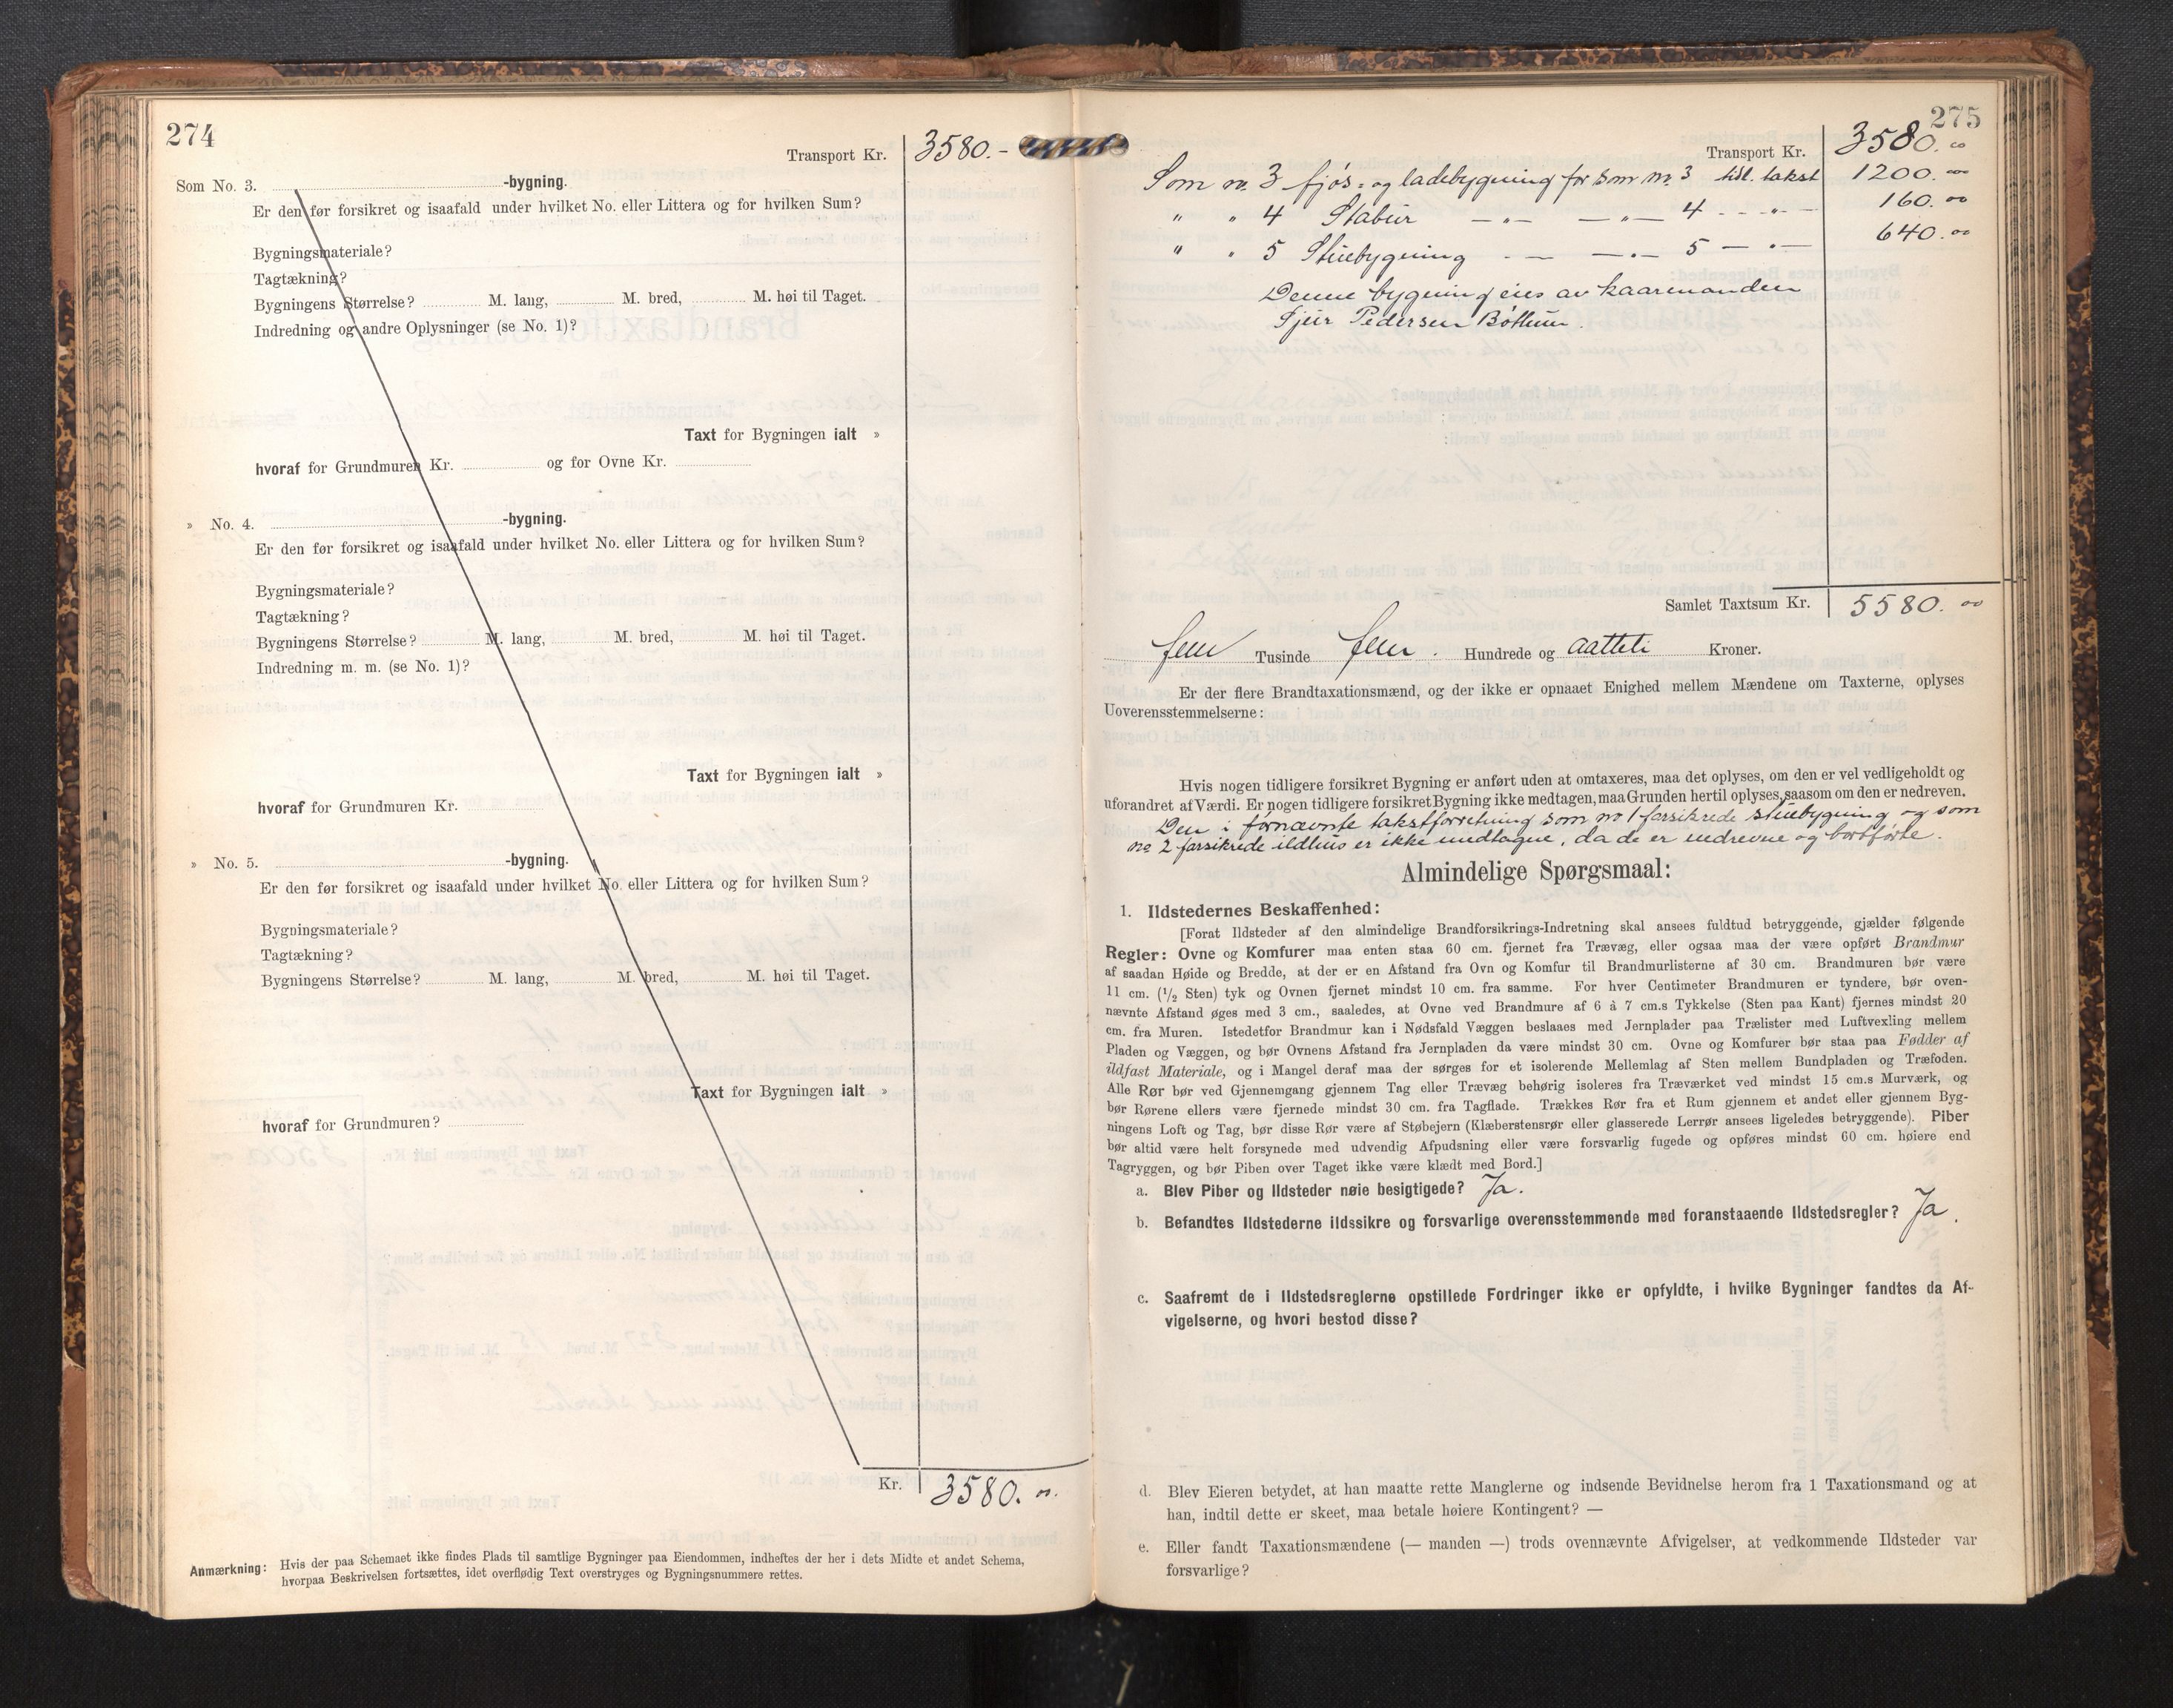 274
Transport Kr. 3580.-
Som No. 3. -bygning.
Er den før forsikret og isaafald under hvilket No. eller Littera og for hvilken Sum?
Bygningsmateriale?
Tagtækning?
Bygningens Størrelse? M. lang, M. bred, M. høi til Taget.
Indredning og andre Oplysninger (se No. 1)?
Taxt for Bygningen ialt »
hvoraf for Grundmuren Kr. og for Ovne Kr.
» No. 4. -bygning.
Er den før forsikret og isaafald under hvilket No. eller Littera og for hvilken Sum?
Bygningsmateriale?
Tagtækning?
Bygningens Størrelse? M. lang, M. bred, M. høi til Taget.
Indredning m. m. (se No. 1)?
Taxt for Bygningen ialt »
hvoraf for Grundmuren Kr.
» No. 5. -bygning.
Er den før forsikret og isaafald under hvilket No. eller Littera og for hvilken Sum?
Bygningsmateriale?
Tagtækning?
Bygningens Størrelse? M. lang, M. bred, M. høi til Taget.
Taxt for Bygningen ialt »
hvoraf for Grundmuren?
Kr. 3580. 00.
Anmærkning: Hvis der paa Schemaet ikke findes Plads til samtlige Bygninger paa Eiendommen, indheftes der her i dets Midte et andet Schema,
hvorpaa Beskrivelsen fortsættes, idet overflødig Text overstryges og Bygningsnummere rettes.
275
Transport Kr. 3580. 00
Som no. 3 fjøs- og ladebygning før som no. 3 tidl. takst 1200. 00
" " 4 Stabur — " — — " — 4 - - - " - 160. 00
" " 5 Stuebygning - — — " — 5 — " — 640. 00
Denne bygning eies av kaarmanden
Sjur Pedersen Bøthun.
Samlet Taxtsum Kr. 5580. 00
fem Tusinde fem. Hundrede og aatteti Kroner.
Er der flere Brandtaxationsmænd, og der ikke er opnaaet Enighed mellem Mændene om Taxterne, oplyses
Uoverensstemmelserne:
Hvis nogen tidligere forsikret Bygning er anført uden at omtaxeres, maa det oplyses, om den er vel vedligeholdt og
uforandret af Værdi. Er nogen tidligere forsikret Bygning ikke medtagen, maa Grunden hertil oplyses, saasom om den er nedreven.
Den i førnævnte takstforretning som no 1 forsikrede stuebygning og som
no 2 forsikrede ildhus er ikke medtagne, da de er nedrevne og bortførte.
Almindelige Spørgsmaal:
1. Ildstedernes Beskaffenhed:
[Forat Ildsteder af den almindelige Brandforsikrings-Indretning skal ansees fuldtud betryggende, gjælder følgende
Regler: Ovne og Komfurer maa enten staa 60 cm. fjernet fra Trævæg, eller ogsaa maa der være opført Brandmur
af saadan Høide og Bredde, at der er en Afstand fra Ovn og Komfur til Brandmurlisterne af 30 cm. Brandmuren bør være
11 cm. (1/2 Sten) tyk og Ovnen fjernet mindst 10 cm. fra samme. For hver Centimeter Brandmuren er tyndere, bør oven-
nævnte Afstand øges med 3 cm., saaledes, at Ovne ved Brandmure af 6 à 7 cm.s Tykkelse (Sten paa Kant) fjernes mindst 20
cm. fra Muren. Istedetfor Brandmur kan i Nødsfald Væggen beslaaes med Jernplader paa Trælister med Luftvexling mellem
Pladen og Væggen, og bør Ovnens Afstand fra Jernpladen da være mindst 30 cm. Ovne og Komfurer bør staa paa Fødder af
ildfast Materiale, og i Mangel deraf maa der sørges for et isolerende Mellemlag af Sten mellem Bundpladen og Træfoden.
Alle Rør bør ved Gjennemgang gjennem Tag eller Trævæg behørig isoleres fra Træværket ved mindst 15 cm.s Murværk, og
bør Rørene ellers være fjernede mindst 30 cm. fra Tagflade. Trækkes Rør fra et Rum gjennem et andet eller gjennem Byg-
ningens Loft og Tag, bør disse Rør være af Støbejern (Klæberstensrør eller glasserede Lerrør ansees ligeledes betryggende). Piber
bør altid være helt forsynede med udvendig Afpudsning eller være forsvarlig fugede og opføres mindst 60 cm. høiere end
Tagryggen, og bør Piben over Taget ikke være klædt med Bord.]
a. Blev Piber og Ildsteder nøie besigtigede? Ja.
b. Befandtes Ildstederne ildssikre og forsvarlige overensstemmende med foranstaaende Ildstedsregler? Ja.
c. Saafremt de i Ildstedsreglerne opstillede Fordringer ikke er opfyldte, i hvilke Bygninger fandtes da Af-
vigelserne, og hvori bestod disse?
d. Blev Eieren betydet, at han maatte rette Manglerne og indsende Bevidnelse herom fra 1 Taxationsmand og at
han, indtil dette er skeet, maa betale høiere Kontingent? —
e. Eller fandt Taxationsmændene (— manden —) trods ovennævnte Afvigelser, at vedkommende Ildsteder var
forsvarlige?